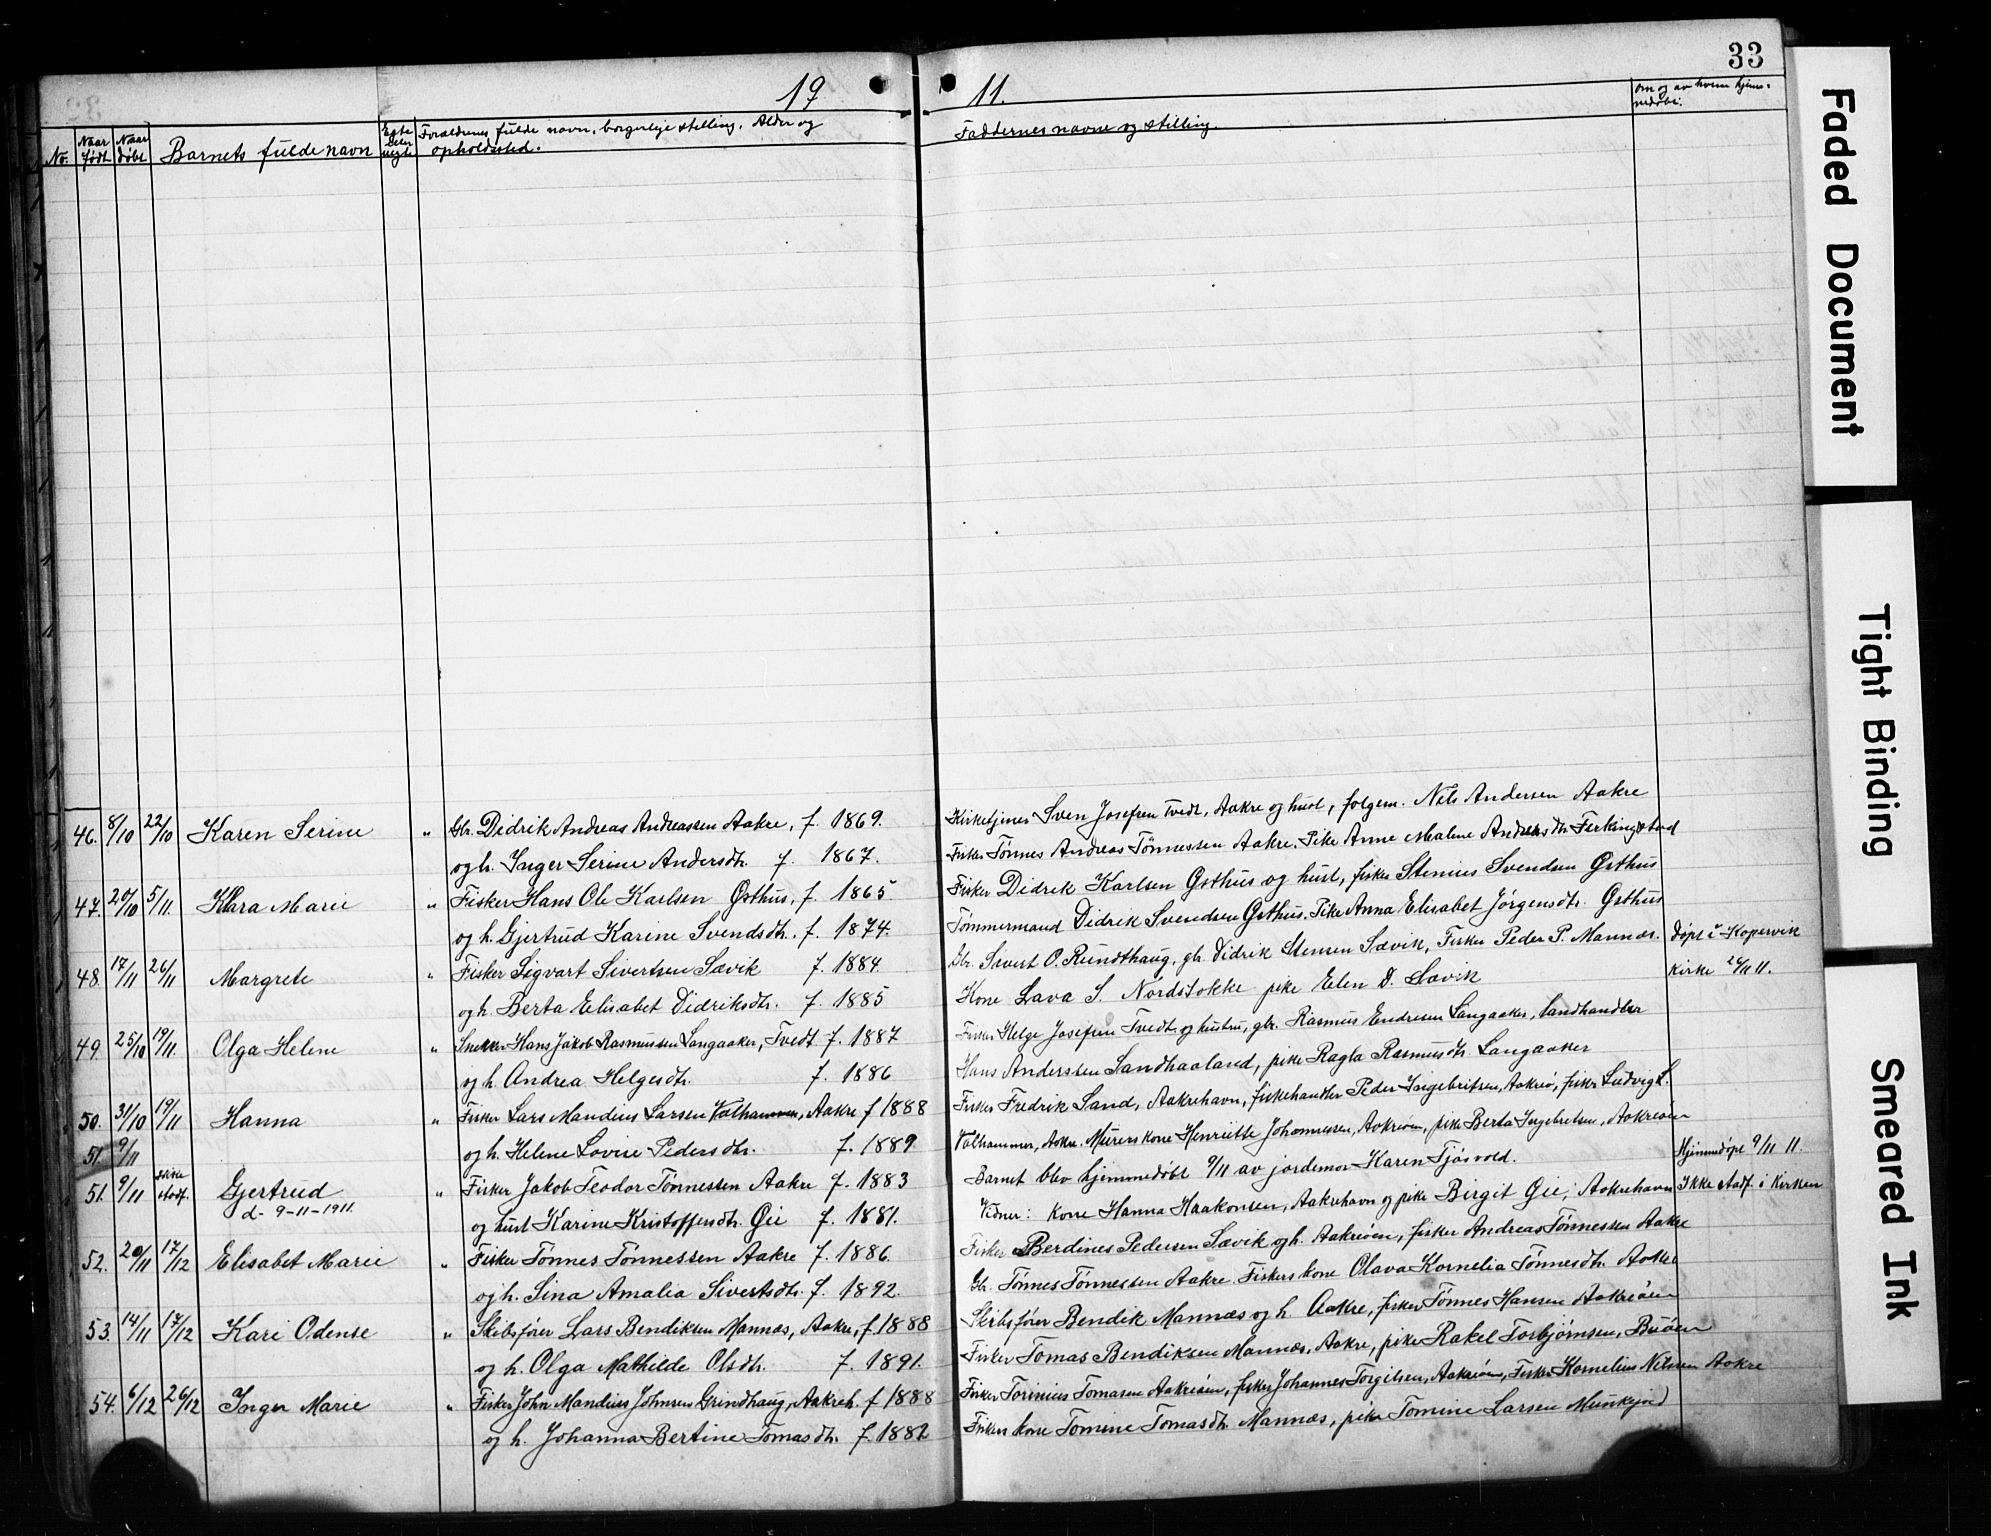 33
19 11.
No. Naar født Naar døbt Barnets fulde navn Egte eller uegte Forældrenes fulde navn, borgerlige stilling, Alder og opholdssted. Faddernes navne og stilling. Om og av hvem hjemmedøbt.
46. 8/10 22/10 Karen Serine " Gbr. Didrik Andreas Andreassen Aakre, f. 1869. Kirketjener Sven Josefsen Tvedt, Aakre og hust, følgem. Nils Andersen Aakre
og h. Inger Serine Andersdtr. f. 1867. Fisker Tønnes Andreas Tønnessen Aakre. Pike Anne Malene Andreasdtr Ferkingstad
47. 20/10 5/11. Klara Marie " Fisker Hans Ole Karlsen Østhus, f. 1865 Fisker Didrik Karlsen Østhus og hust, fisker Stenius Svendsen Østhus
og h. Gjertrud Karene Svendsdtr. f. 1874. Tømmermand Didrik Svendsen Østhus. Pike Anna Elisabet Jørgensdtr. Østhus
48. 17/11 26/11 Margrete " Fisker Sigvart Sivertsen Sævik f. 1884. Gbr. Sivert O. Rundthaug, gbr. Didrik Stensen Sævik, Fisker Peder P. Mannæs. Døpt i Kopervik
og h. Berta Elisabet Didriksdtr. f. 1885 Kone Lava S. Nordstokke pike Elen D. Sævik kirke 26/11 11.
49. 25/10 19/11. Olga Helene " Snekker Hans Jakob Rasmussen Langaaker, Tvedt f. 1887 Fisker Helge Josefsen Tvedt og hustru, gbr. Rasmus Endresen Langaaker, landhandler
og h. Andrea Helgesdtr. f. 1886 Hans Anderssen Sandhaaland, pike Ragla Rasmusdtr. Langaaker
50. 31/10 19/11 Hanna " Fisker Lars Mandius Larsen Valhammer, Aakre f 1888 Fisker Fredrik Sand, Aakrehavn, fiskehandler Peder Ingebritsen, Aakreø, fisker Ludvig L.
51. 9/11 og h. Helene Lovise Pedersdtr. f. 1889 Valhammer, Aakre. Murers kone Henriette Johannessen, Aakreøen, pike Berta Ingebretsen, Aakreøen
51. 9/11 ikke stadf. Gjertrud " Fisker Jakob Teodor Tønnessen Aakre f. 1883 Barnet blev hjemmedøbt 9/11 av jordemor Karen Tjøsvold. Hjemmedøpt 9/11 11.
d. 9-11-1911. og hust Karine Kristoffersdtr. Gie f. 1881. Vidner: kone Hanna Haakonsen, Aakrehavn og pike Birgit Gie, Aakrehavn Ikke stadf. i Kirken
52. 20/11 17/12 Elisabet Marie " Fisker Tønnes Tønnessen Aakre f. 1886. Fisker Berdines Pedersen Sævik og h. Aakreøen, fisker Andreas Tønnessen Aakre
og h. Sina Amalia Sivertsdtr. f. 1892. Gbr. Tønnes Tønnessen Aakre. Fiskers kone Olava Kornelia Tønnesdtr. Aakre
53. 14/11 17/12 Kari Odense " Skibsfører Lars Bendiksen Mannæs, Aakre, f 1888 Skibsfører Bendik Mannæs og h. Aakre, fisker Tønnes Hansen Aakreøen
og h. Olga Mathilde Olsdtr. f. 1891. Fisker Tomas Bendiksen Mannæs, Aakre, pike Rakel Torbjørnsen, Buøen
54. 6/12 26/12 Inger Marie " Fisker John Mandius Johnsen Grindhaug, Aakreh. f 1888 Fisker Torinius Tomasen Aakreøen, fisker Johannes Torgilsen, Aakreøen, Fisker Kornelius Nilssen Aakre
og h. Johanna Bertine Tomasdtr. f. 1882 Fiskers kone Tomine Tomasdtr. Mannæs, pike Tomine Larsen Munkejord
Faded Document
Tight Binding
Smeared Ink